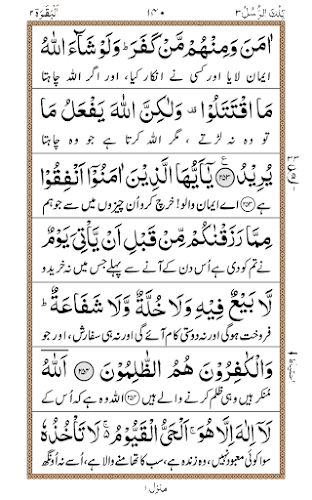 تِلْكَ الرُّسُلُ ٣ ١٤٠ اَلْبَقَرَة ٢
اٰمَنَ وَمِنْهُمْ مَّنْ كَفَرَ ؕ وَلَوْ شَآءَ اللّٰهُ
ایمان لایا اور کسی نے انکار کیا، اور اگر اللہ چاہتا
مَا اقْتَتَلُوْا ۟ وَلٰكِنَّ اللّٰهَ يَفْعَلُ مَا
تو وہ نہ لڑتے ، مگر اللہ کرتا ہے جو وہ چاہتا
يُرِيْدُ ﴿۲۵۳﴾ يٰۤاَيُّهَا الَّذِيْنَ اٰمَنُوْۤا اَنْفِقُوْا
ہے ﴿۲۵۳﴾ اے ایمان والو! خرچ کرو اُن چیزوں میں سے جو ہم
مِمَّا رَزَقْنٰكُمْ مِّنْ قَبْلِ اَنْ يَّاْتِيَ يَوْمٌ
نے تم کو دی ہے اُس دن کے آنے سے پہلے جس میں نہ خرید و
لَّا بَيْعٌ فِيْهِ وَلَا خُلَّةٌ وَّلَا شَفَاعَةٌ ؕ
فروخت ہوگی اور نہ دوستی کام آئے گی اور نہ ہی سفارش، اور جو
وَالْكٰفِرُوْنَ هُمُ الظّٰلِمُوْنَ ﴿۲۵۴﴾ اَللّٰهُ
منکر ہیں وہی ظلم کرنے والے ہیں ﴿۲۵۴﴾ اللہ وہ ہے کہ اُس کے
لَاۤ اِلٰهَ اِلَّا هُوَ ۚ اَلْحَيُّ الْقَيُّوْمُ ۚ لَا تَاْخُذُهٗ
سوا کوئی معبود نہیں، وہ زندہ ہے، سب کا تھامنے والا ہے، اُسے نہ اُونگھ
منزل ۱